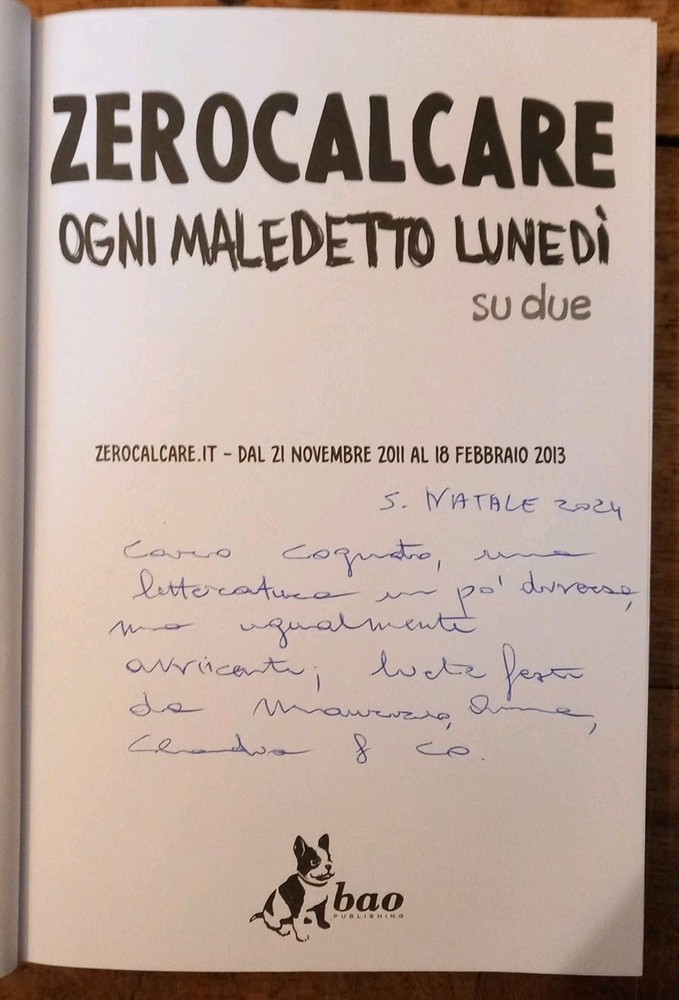 ZEROCALCARE
OGNI MALEDETTO LUNEDÌ
su due
ZEROCALCARE.IT – DAL 21 NOVEMBRE 2011 AL 18 FEBBRAIO 2013
S. NATALE 2024
Caro Cognato, una
letteratura un po' diversa,
ma ugualmente
feste
da Maurizio, Anna,
& Co.
bao
PUBLISHING